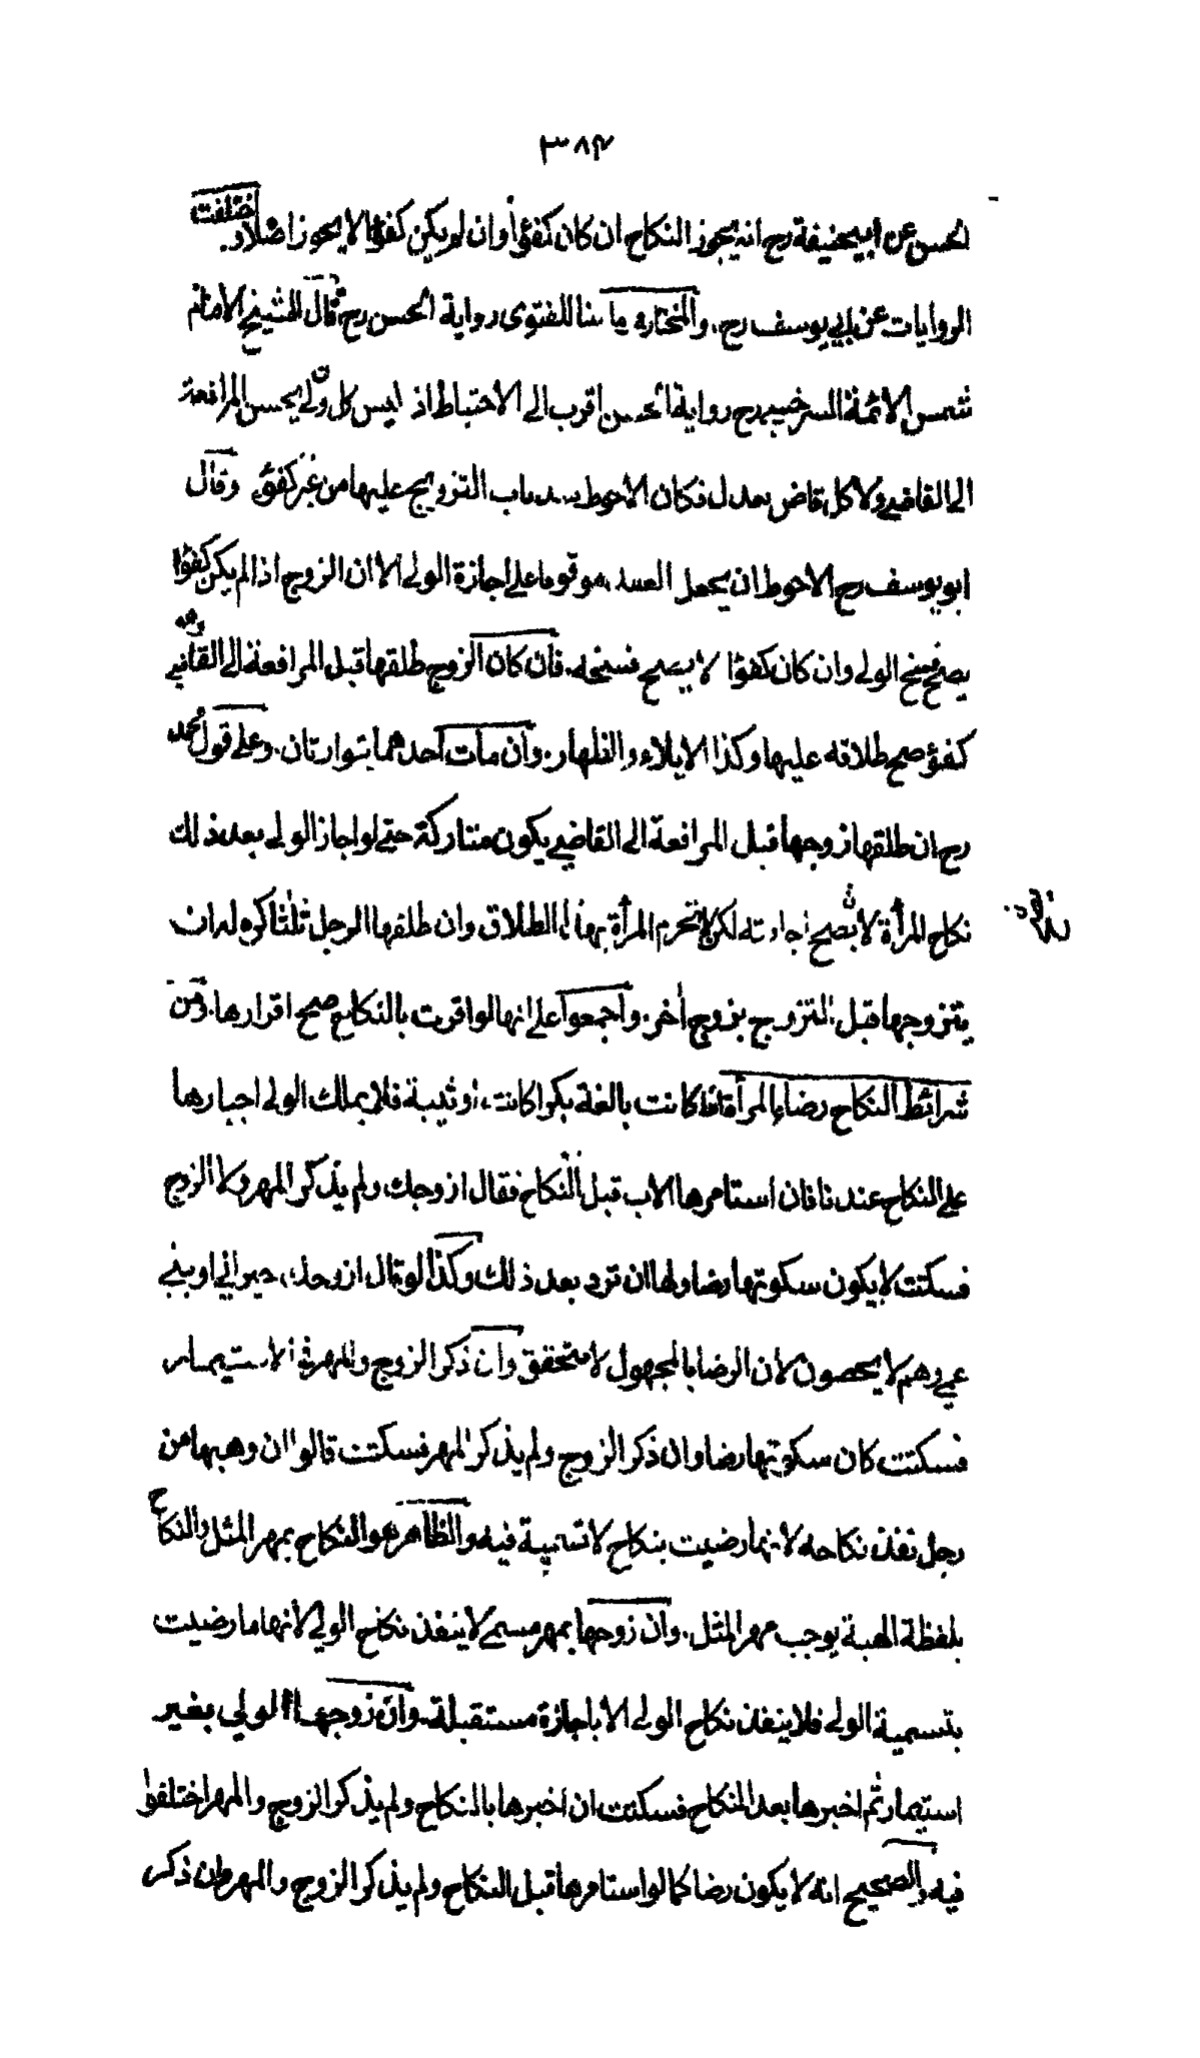 ٣٨٤
الحسن عن ابيحنيفة رح انه يجوز النكاح ان كان كفؤا وان لم يكن كفؤا لا يجوز اصلا و اختلفت
الروايات عن ابي يوسف رح، والمختار في زماننا للفتوى رواية الحسن رح قال الشيخ الامام
شمس الائمة السرخسي رح رواية الحسن اقرب الى الاحتياط اذ ليس كل ولي يحسن المرافعة
الى القاضي ولا كل قاض يعدل فكان الاحوط سد باب التزويج عليها من غير كفؤ وقال
ابو يوسف رح الاحوط ان يجعل العقد موقوفا على اجازة الولي الا ان الزوج اذا لم يكن كفؤا
يصح فسخ الولي وان كان كفؤا لا يصح فسخه. فان كان الزوج طلقها قبل المرافعة الى القاضي وهو
كفؤ صح طلاقه عليها وكذا الايلاء والظهار. وان مات احدهما يتوارثان. وعلى قول محمد
رح ان طلقها زوجها قبل المرافعة الى القاضي يكون متاركة حتى لو اجاز الولي بعد ذلك
نكاح المرأة لا تصح اجازته لكن لا تحرم المرأة بهذا الطلاق وان طلقها الرجل ثلثا كره له ان
يتزوجها قبل التزوج بزوج أخر. واجمعوا على انها لو اقرت بالنكاح صح اقرارها. ومن
شرائط النكاح رضاء المرأة اذا كانت بالغة بكرا كانت، او ثيبة فلا يملك الولي اجبارها
على النكاح عندنا فان استامرها الاب قبل النكاح فقال ازوجك، ولم يذكر المهر ولا الزوج
فسكتت لا يكون سكوتها رضا ولها ان ترد بعد ذلك وكذا لو قال ازوجك، جيراني او بني
عمي وهم لا يحصون لان الرضا بالمجهول لا يتحقق وان ذكر الزوج والمهر في الاستيمار
فسكتت كان سكوتها رضا وان ذكر الزوج ولم يذكر المهر فسكتت قالوا ان وهبها من
رجل نفذ نكاحه لانها رضيت بنكاح لا تسمية فيه والظاهر هو النكاح بمهر المثل والنكاح
بلفظة الهبة يوجب مهر المثل. وان زوجها بمهر مسمى لا ينفذ نكاح الولي لانها ما رضيت
بتسمية الولي فلا ينفذ نكاح الولي الا باجازة مستقبلة. وان زوجها الولي بغير
استيمار ثم اخبرها بعد النكاح فسكتت ان اخبرها بالنكاح ولم يذكر الزوج والمهر اختلفوا
فيه والصحيح انه لا يكون رضا كما لو استامرها قبل النكاح ولم يذكر الزوج والمهر وان ذكر